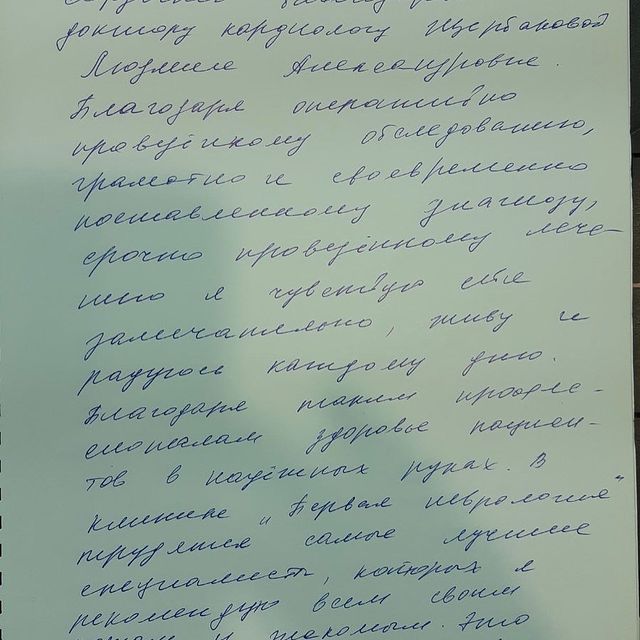 доктору кардиологу Щербаковой
Людмиле Александровне.
Благодаря оперативно
проведённому обследованию,
грамотно и своевременно
поставленному диагнозу,
срочно проведённому лече-
нию я чувствую себя
замечательно, живу и
радуюсь каждому дню.
Благодаря таким профес-
сионалам здоровье пациен-
тов в надёжных руках. В
клинике „Первая неврология"
трудятся самые лучшие
специалисты, которых я
рекомендую всем своим
и знакомым. Это